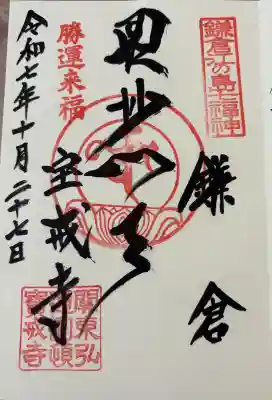 鎌倉江の島七福神
鎌倉
毘沙門天
勝運来福
宝戒寺
關東弘
圓頓
寶戒寺
令和七年十月二十七日